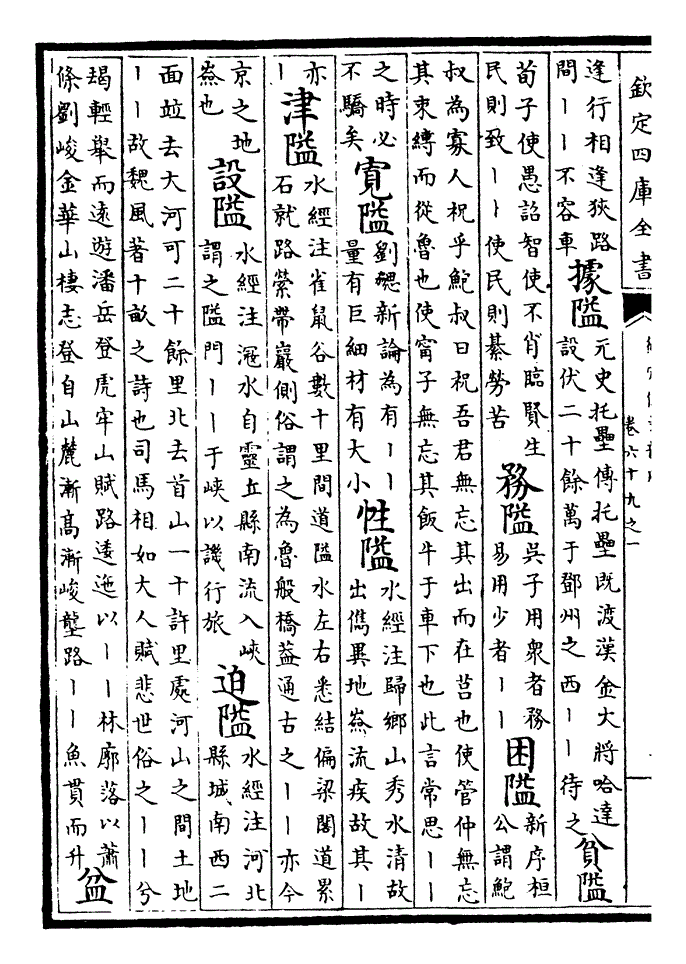 欽定四庫全書
卷六十九之一
逢行相逢狹路
間丨丨不容車
據隘
元史托壘傳托壘既渡漢金大將哈達
設伏二十餘萬于鄧州之西丨丨待之
貧隘
荀子使愚詔智使不肖臨賢生
民則致丨丨使民則綦勞苦
務隘
吳子用衆者務
易用少者丨丨
困隘
新序桓
公謂鮑
叔為寡人祝乎鮑叔曰祝吾君無忘其出而在莒也使管仲無忘
其束縛而從魯也使甯子無忘其飯牛于車下也此言常思丨丨
之時必
不驕矣
寛隘
劉勰新論為有丨丨
量有巨細材有大小
性隘
水經注歸鄉山秀水清故
出儁異地嶮流疾故其丨
亦
丨
津隘
水經注雀鼠谷數十里間道隘水左右悉結偏梁閣道累
石就路縈帶巖側俗謂之為魯般橋葢通古之丨丨亦今
京之地
嶮也
設隘
水經注㴆水自靈丘縣南流入峽
謂之隘門丨丨于峽以譏行旅
迫隘
水經注河北
縣城南西二
面竝去大河可二十餘里北去首山一十許里處河山之間土地
丨丨故魏風著十畝之詩也司馬相如大人賦悲世俗之丨丨兮
朅輕舉而遠遊潘岳登虎牢山賦路逶迤以丨丨林廓落以蕭
條劉峻金華山棲志登自山麓漸高漸峻壟路丨丨魚貫而升
盆